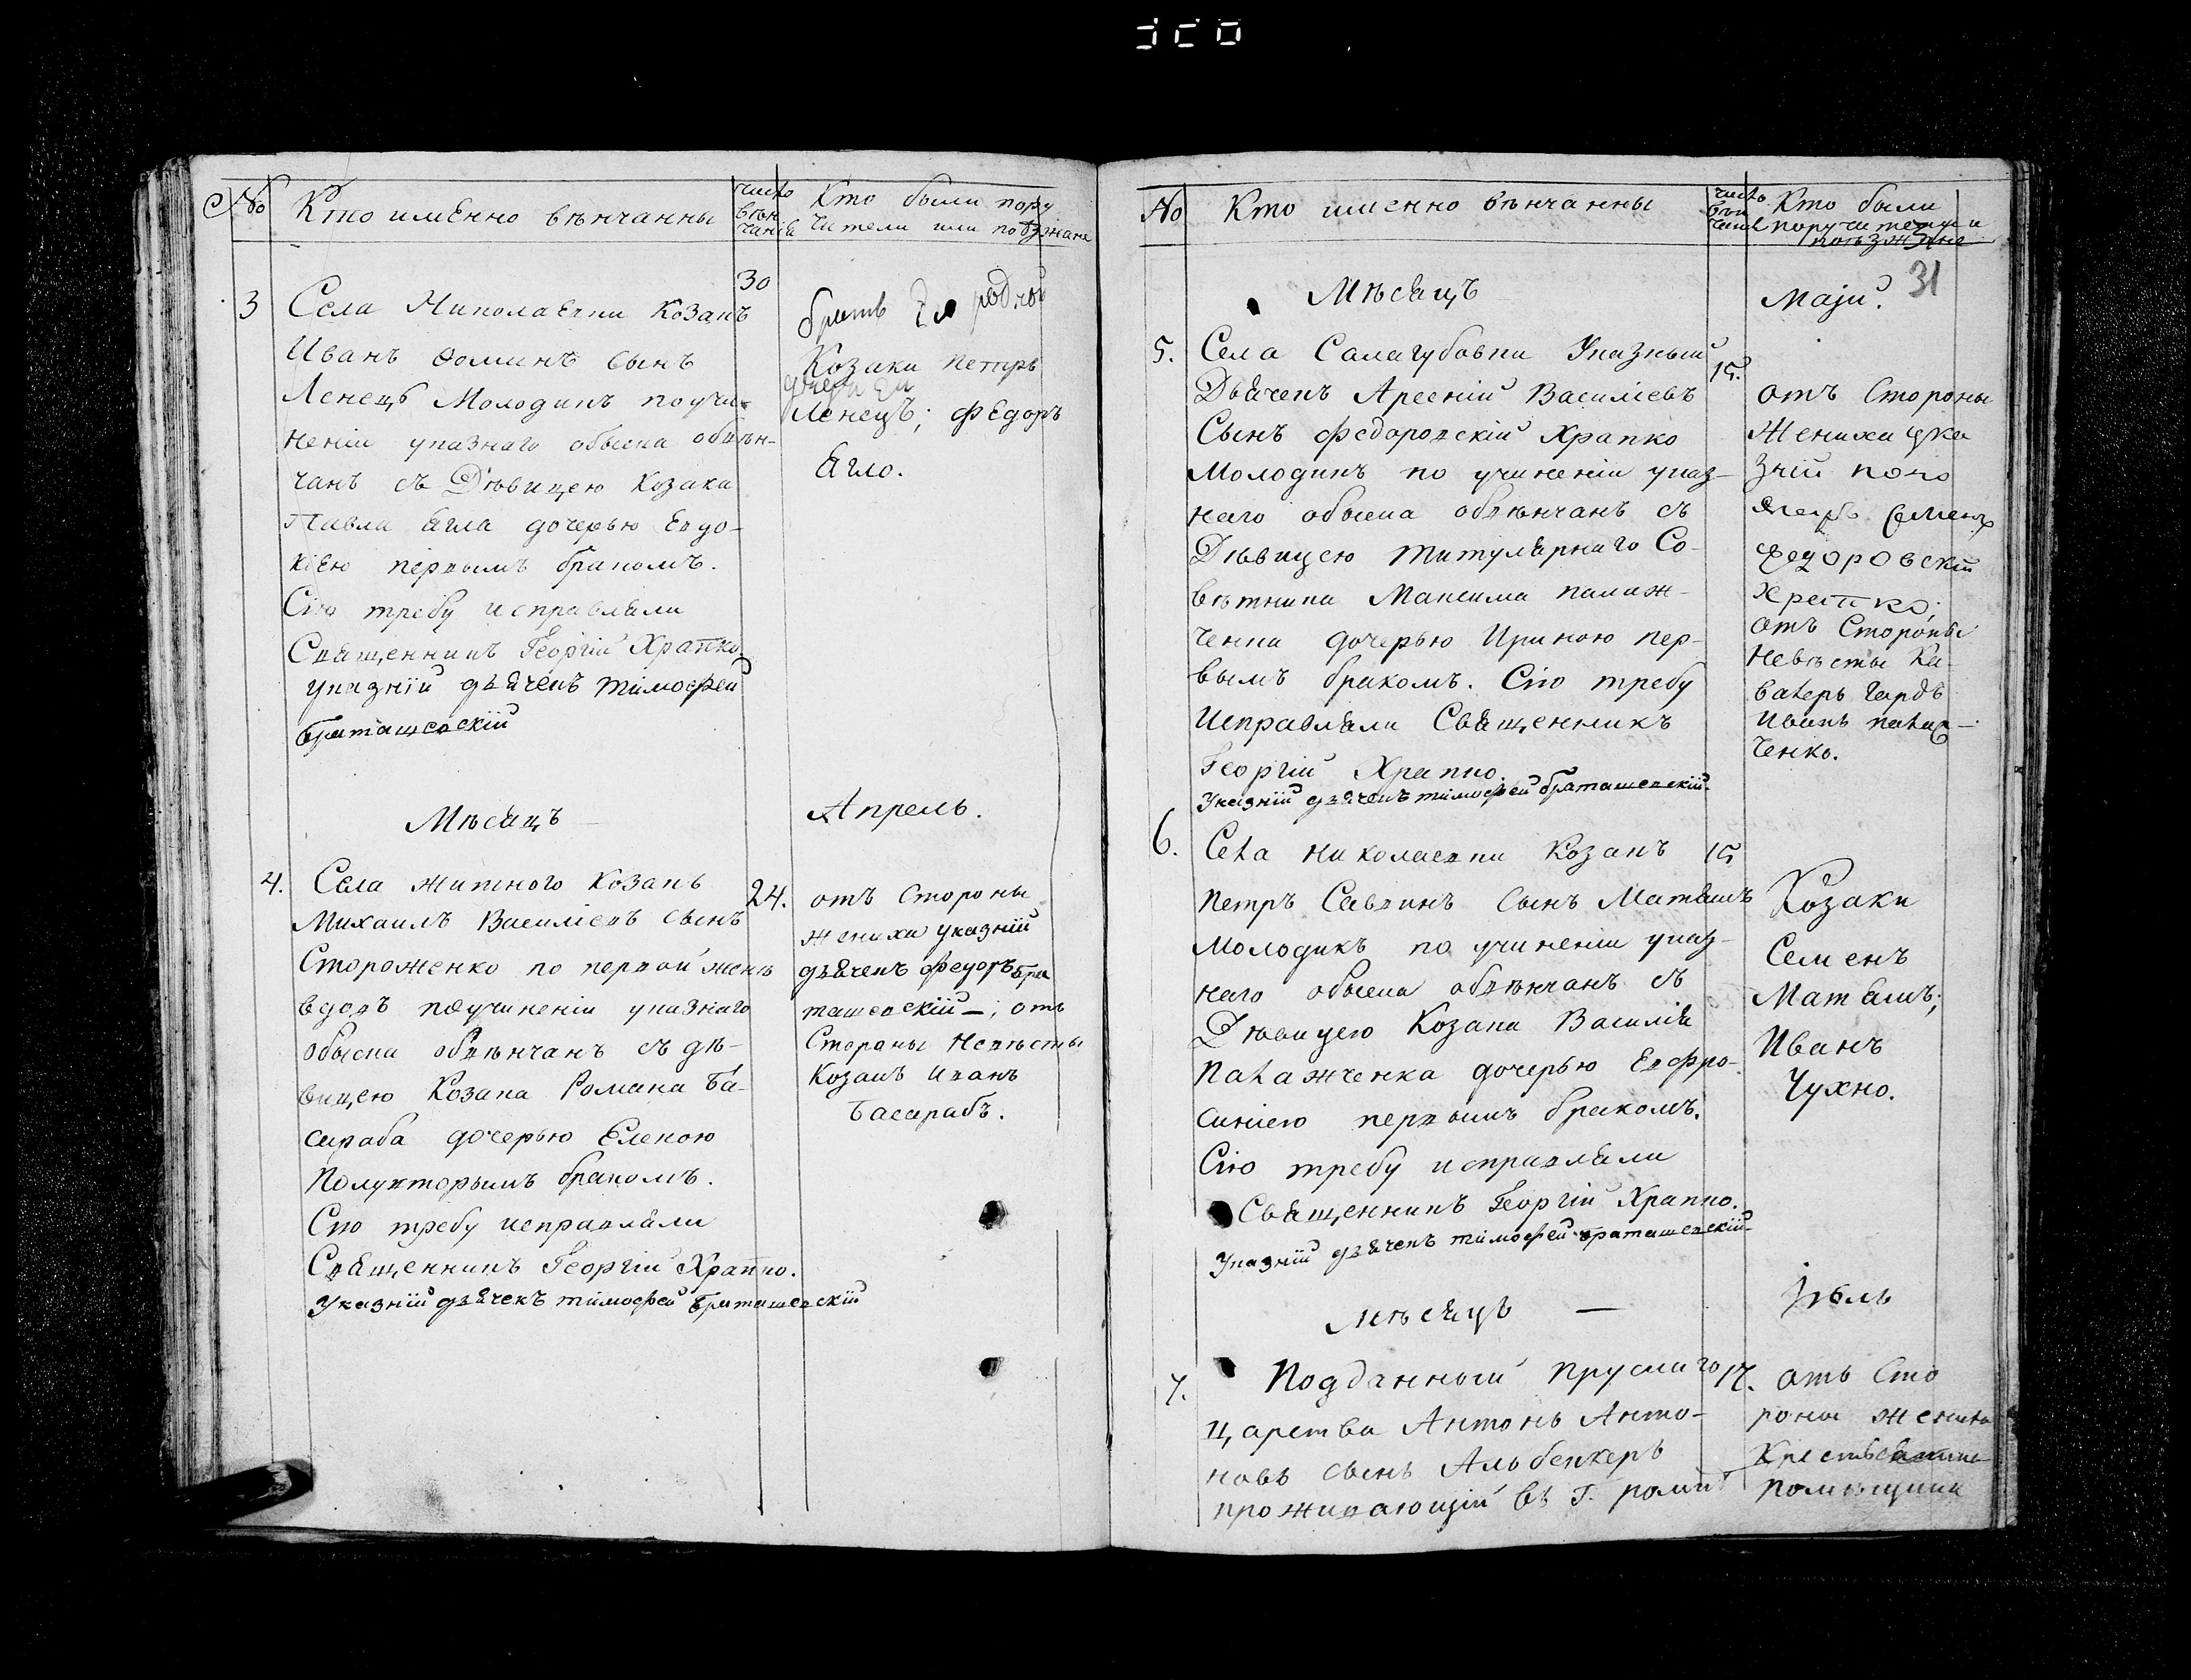 №
Кто именно вѣнчанны
число вѣн чанiя
Кто были пору
чители или поѣзжане
30
3
Села Николаевки Козакъ
Иванъ Ѳоминъ сынъ
Ленецъ Молодикъ поучи-
ненiи указнаго обыска обвѣн-
чанъ съ Дѣвицею Козака
Павла Ягла дочерью Евдо-
кiею первымъ бракомъ.
Сiю требу исправляли
Священникъ Георгiй Храпко.
указнiй дьячекъ тiмофей
браташевскiй
братъ родной
Козаки петръ
Ленецъ; федоръ
Ягло.
Мѣсяцъ
Апрель.
4.
Села житного Козакъ
Михаилъ Василiевъ сынъ
Стороженко по первой женѣ
вдовъ поучиненiи указнаго
обыска обвѣнчанъ съ дѣ-
вицею Козака Романа Ба-
сараба дочерью Еленою
Полувторымъ бракомъ.
Сiю требу исправляли
Священникъ Георгiй Храпко.
Указнiй дьячекъ тiмофей браташевскiй
24.
отъ Стороны
жениха указнiй
дьячекъ федоръ бра
ташевскiй —; отъ
Стороны Невѣсты
Козакъ иванъ
Басарабъ.
№
Кто именно вѣнчанны
число вѣн чанiя
Кто были
поручители и
поѣзжане
31
Мѣсяцъ
Маjй.
5.
Села Салагубовки Указный
Дьячекъ Арсенiй Василiевъ
Сынъ федоровскiй Храпко
Молодикъ по учиненiи указ-
наго обыска обвѣнчанъ съ
Дѣвицею Титулярнаго Со-
вѣтника Максима палаж-
ченка дочерью Ириною пер-
вымъ бракомъ. Сiю требу
Исправляли Священникъ
Георгiй Храпко.
Указнiй дьячекъ тiмофей браташевскiй.
15.
отъ Стороны
Жениха ука
знiй поно
марь Семенъ
федоровскiй
храпко;
отъ Стороны
Невѣсты Ка-
валеръ гардъ
Иванъ палаж-
ченко.
6.
Села Николаевки Козакъ
петръ Саввинъ Сынъ Матяшъ
молодикъ по учиненiи указ-
наго обыска обвѣнчанъ съ
Дѣвицею Козака Василiя
палажченка дочерью Евфро-
синiею первымъ бракомъ.
Сiю требу исправляли
Священникъ Георгiй Храпко.
Указнiй дьячекъ тiмофей браташевскiй
15
Козаки
Семенъ
Матяшъ;
Иванъ
Чухно.
мѣсяцъ —
Iюль
7.
Подданный прускаго
царства Антонъ Анто-
новъ сынъ Альбенкеръ
проживающiй въ г. ромнѣ
17.
отъ Сто
роны жениха
Крестьянинъ
помѣщика